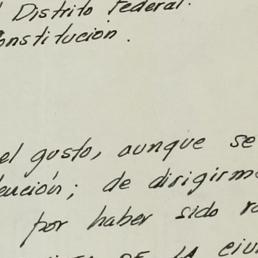 Distrito Federal.
onstitucion.
el gusto, aunque se
ención; de dirigirm
por haber sido
DE LA ciu